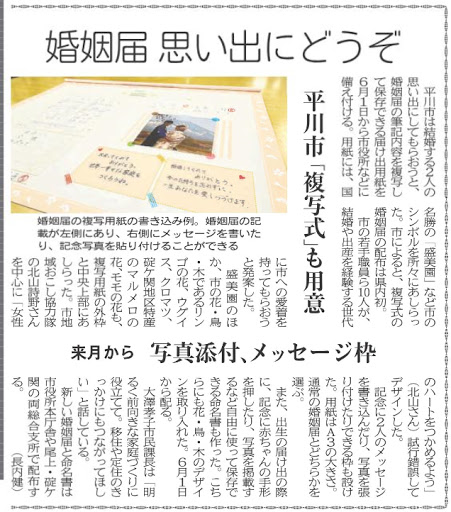 婚姻届 思い出にどうぞ
平川市「複写式」も用意
　平川市は結婚する２人の
思い出にしてもらおうと、
婚姻届の筆記内容を複写し
て保存できる届け出用紙を
６月１日から市役所などに
備え付ける。用紙には、国
名勝の「盛美園」など市の
シンボルを所々にあしらっ
た。市によると、複写式の
婚姻届の配布は県内初。
　市の若手職員ら10人が、
結婚や出産を経験する世代
婚姻届の複写用紙の書き込み例。婚姻届の記
載が左側にあり、右側にメッセージを書いた
り、記念写真を貼り付けることができる
に市への愛着を
持ってもらおう
と発案した。
　盛美園のほ
か、市の花・鳥
・木であるリン
ゴの花、ウグイ
ス、クロマツ、
碇ケ関地区特産
のマルメロの
花、モモの花も、
複写用紙の外枠
と中央上部にあ
しらった。市地
域おこし協力隊
の北山詩野さん
を中心に「女性
来月から 写真添付、メッセージ枠
のハートをつかめるよう」
（北山さん）試行錯誤して
デザインした。
　記念に２人のメッセージ
を書き込んだり、写真を張
り付けたりできる枠も設け
た。用紙はＡ３の大きさ。
通常の婚姻届とどちらかを
選ぶ。
　また、出生の届け出の際
に、記念に赤ちゃんの手形
を押したり、写真を掲載す
るなど自由に使って保存で
きる命名書も作った。こち
らにも花・鳥・木のデザイ
ンを取り入れた。６月１日
から配る。
　大澤孝子市民課長は「明
るく前向きな家庭づくりに
役立てて。移住や定住のき
っかけにもつながってほし
い」と話している。
　新しい婚姻届と命名書は
市役所本庁舎や尾上・碇ケ
関の両総合支所で配布す
る。　（長内健）